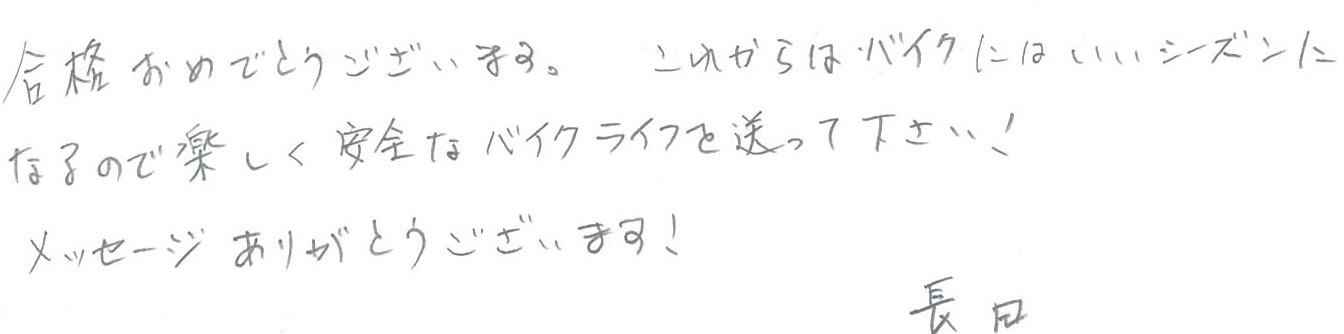 合格おめでとうございます。 これからはバイクにはいいシーズンに
なるので楽しく安全なバイクライフを送って下さい!
メッセージありがとうございます!
長田